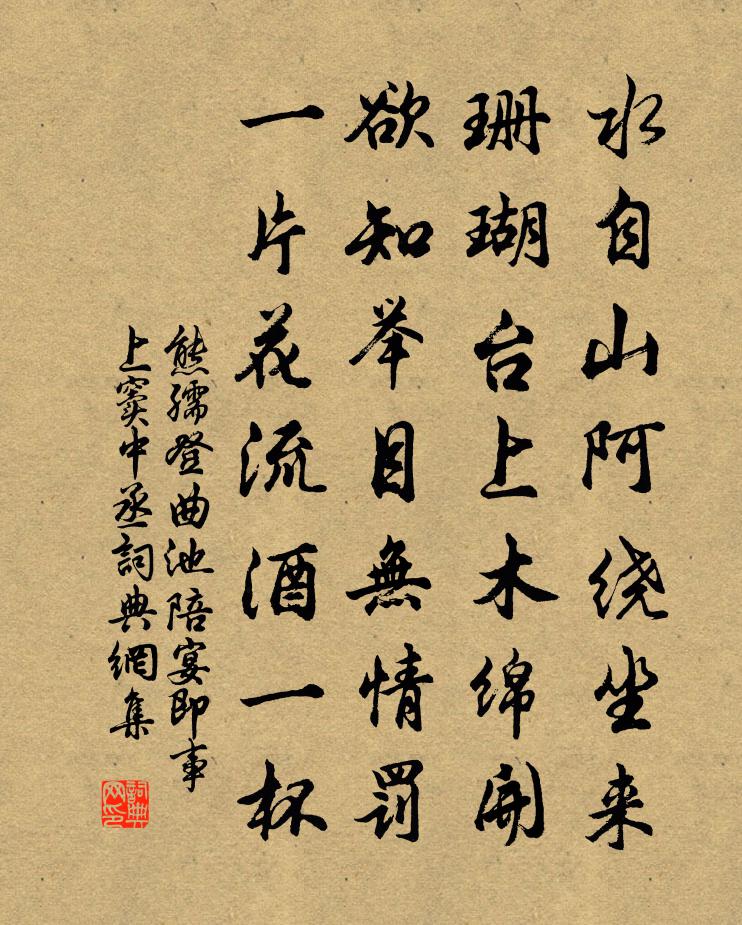 水自山阿绕坐来
珊瑚台上木绵开
欲知举目無情罚
一片花流酒一杯
熊孺登曲池陪宴即事
上窦中丞詞典網集
詞典
网印